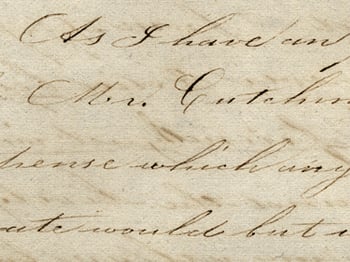 As I have an
Mr. Cutchin
pense which any
ate would but